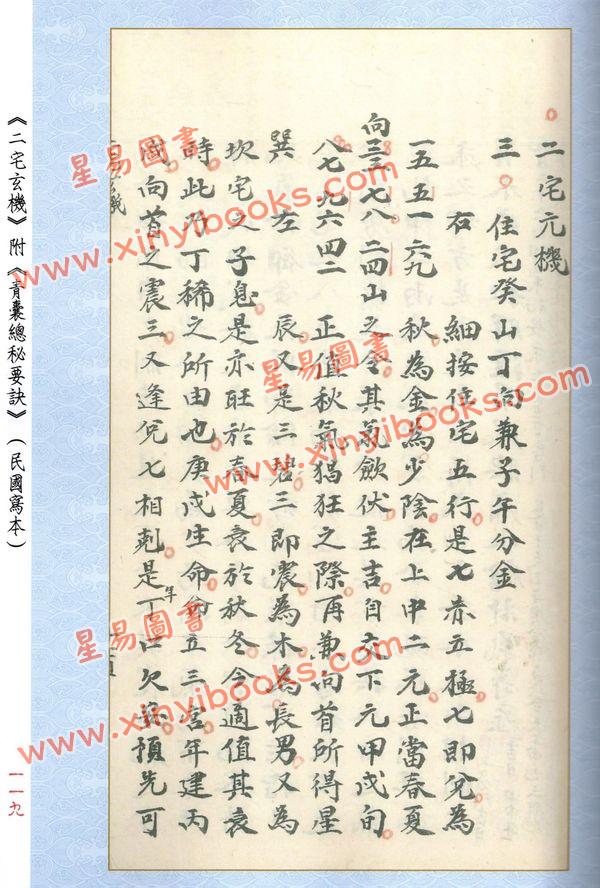 二宅元機
三 住宅癸山丁向兼子午分金
右 細按住宅五行是七赤立極七即兌為
一五五一六九 秋為金為少陰在上中二元正當春夏
向三三七八二四山之令其氣歛伏主吉自交下元甲戌旬
八七九六四二 正值秋氣猖狂之際再兼向首所得星
巽 左 辰又是三碧三即震為木為長男又為
坎宅之子息是亦旺於春夏衰於秋冬今適值其衰
時此乃丁稀之所由也庚戌生命年立三宮年建丙
向首之震三又逢兌七相剋是丁口欠 預先可
《二宅玄機》附《青囊總秘要訣》（民國寫本）
一一九
星易圖書
www.xinyibooks.com
星易圖書
www.xinyibooks.com
星易圖書
www.xinyibooks.com